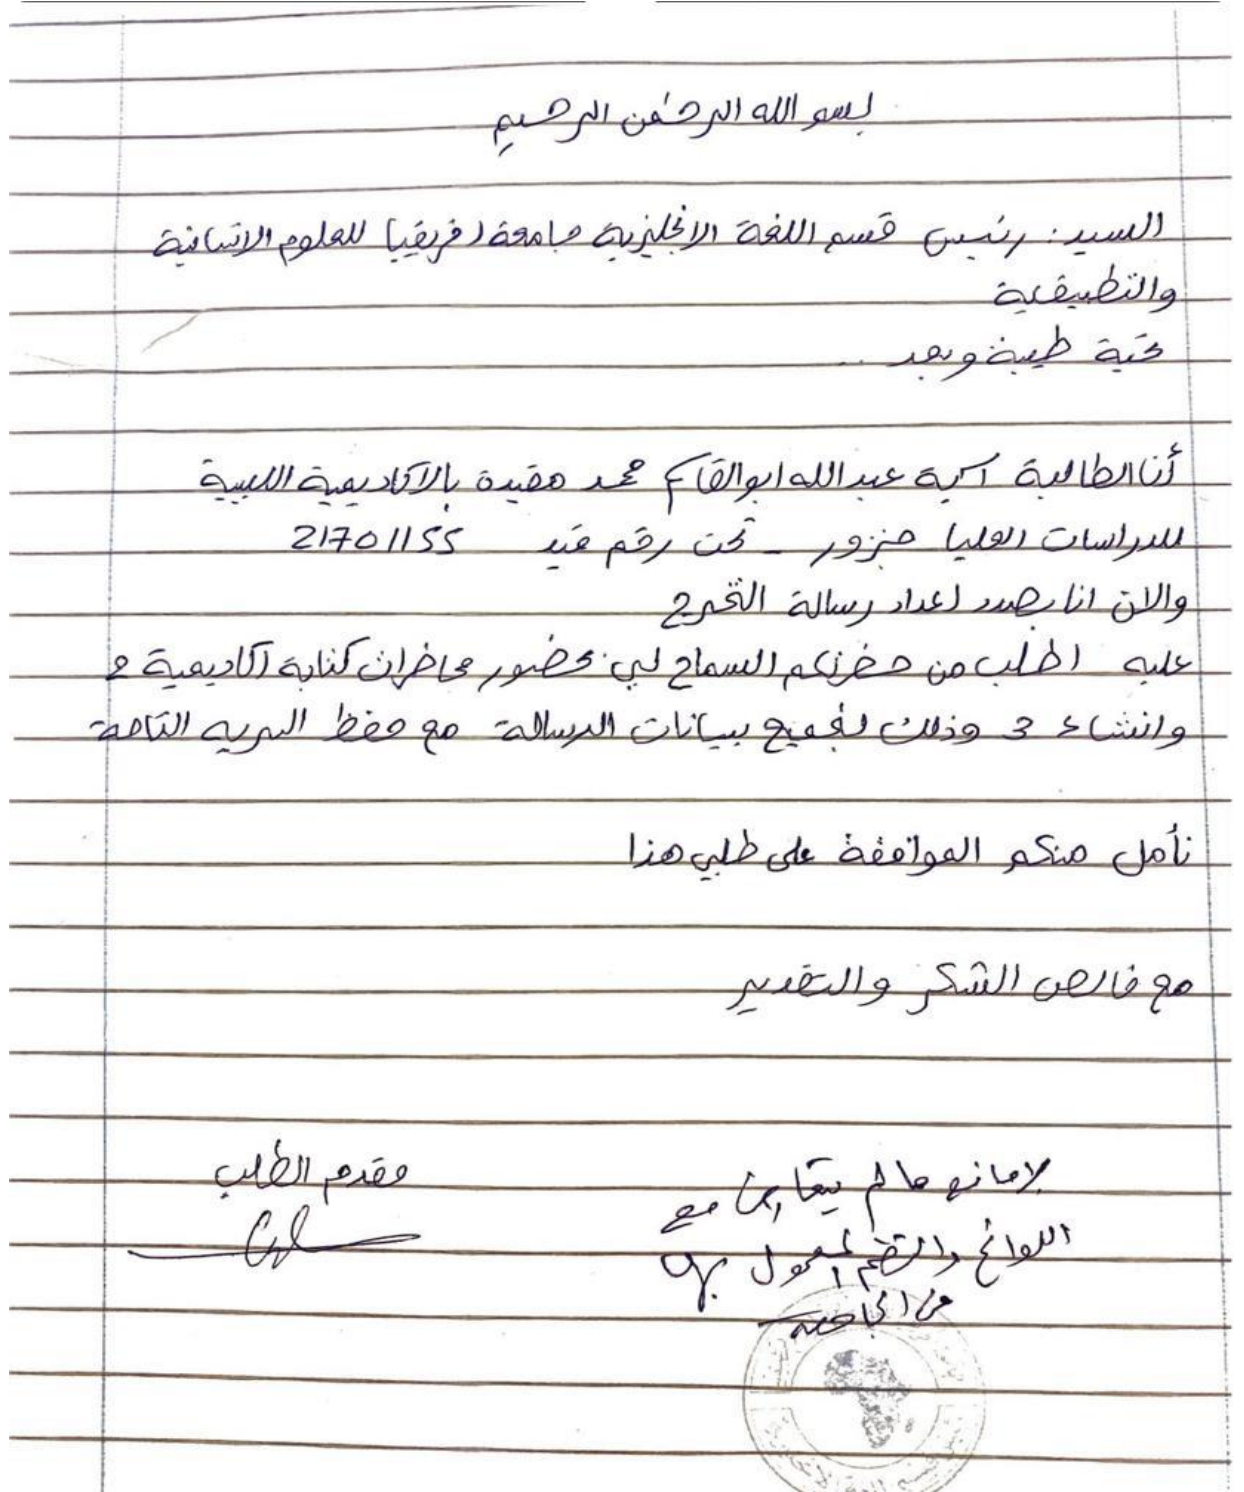 بسم الله الرحمن الرحيم
السيد : رئيس قسم اللغة الانجليزية جامعة افريقيا للعلوم الانسانية
والتطبيقية
تحية طيبة وبعد ..
أنا الطالبة آسية عبد الله ابوالقاسم محمد مقيدة بالاكاديمية الليبية
للدراسات العليا جنزور - تحت رقم قيد 21701155
والان انا بصدد اعداد رسالة التخرج
عليه اطلب من حضرتكم السماح لي بحضور محاضرات كتابة اكاديمية 2
وانشاء 3 وذلك لتجميع بيانات الرسالة مع حفظ السريه التامة
نأمل منكم الموافقة على طلبي هذا
مع خالص الشكر والتقدير
مقدم الطلب
لامانع مالم يتعارض مع
اللوائح والنظم المعمول بها
في الجامعة